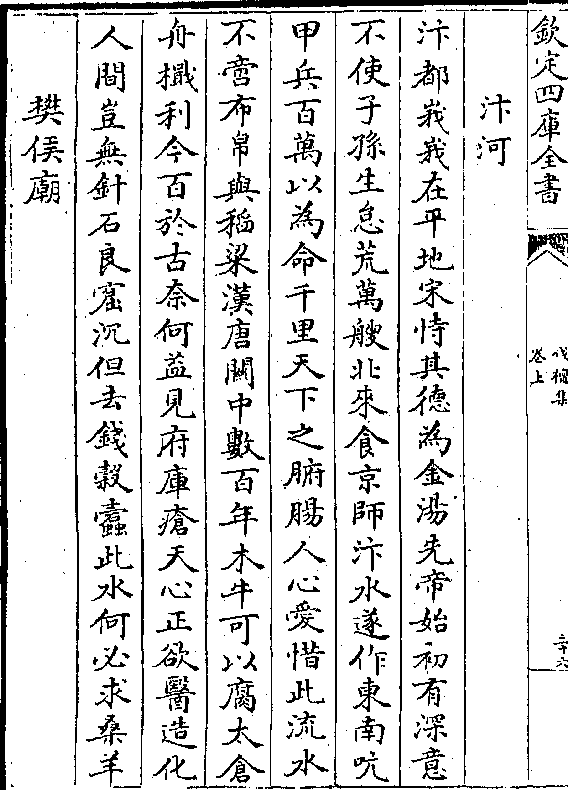 欽定四庫全書
卷上
汴河
汴都峩峩在平地宋恃其德為金湯先帝始初有深意
不使子孫生怠荒萬艘北來食京師汴水遂作東南吭
甲兵百萬以為命千里天下之腑腸人心愛惜此流水
不啻布帛與稻粱漢唐關中數百年木牛可以腐太倉
舟檝利今百於古奈何益見府庫瘡天心正欲醫造化
人間豈無針石良窟沉但去錢榖蠧此水何必求桑羊
樊侯廟